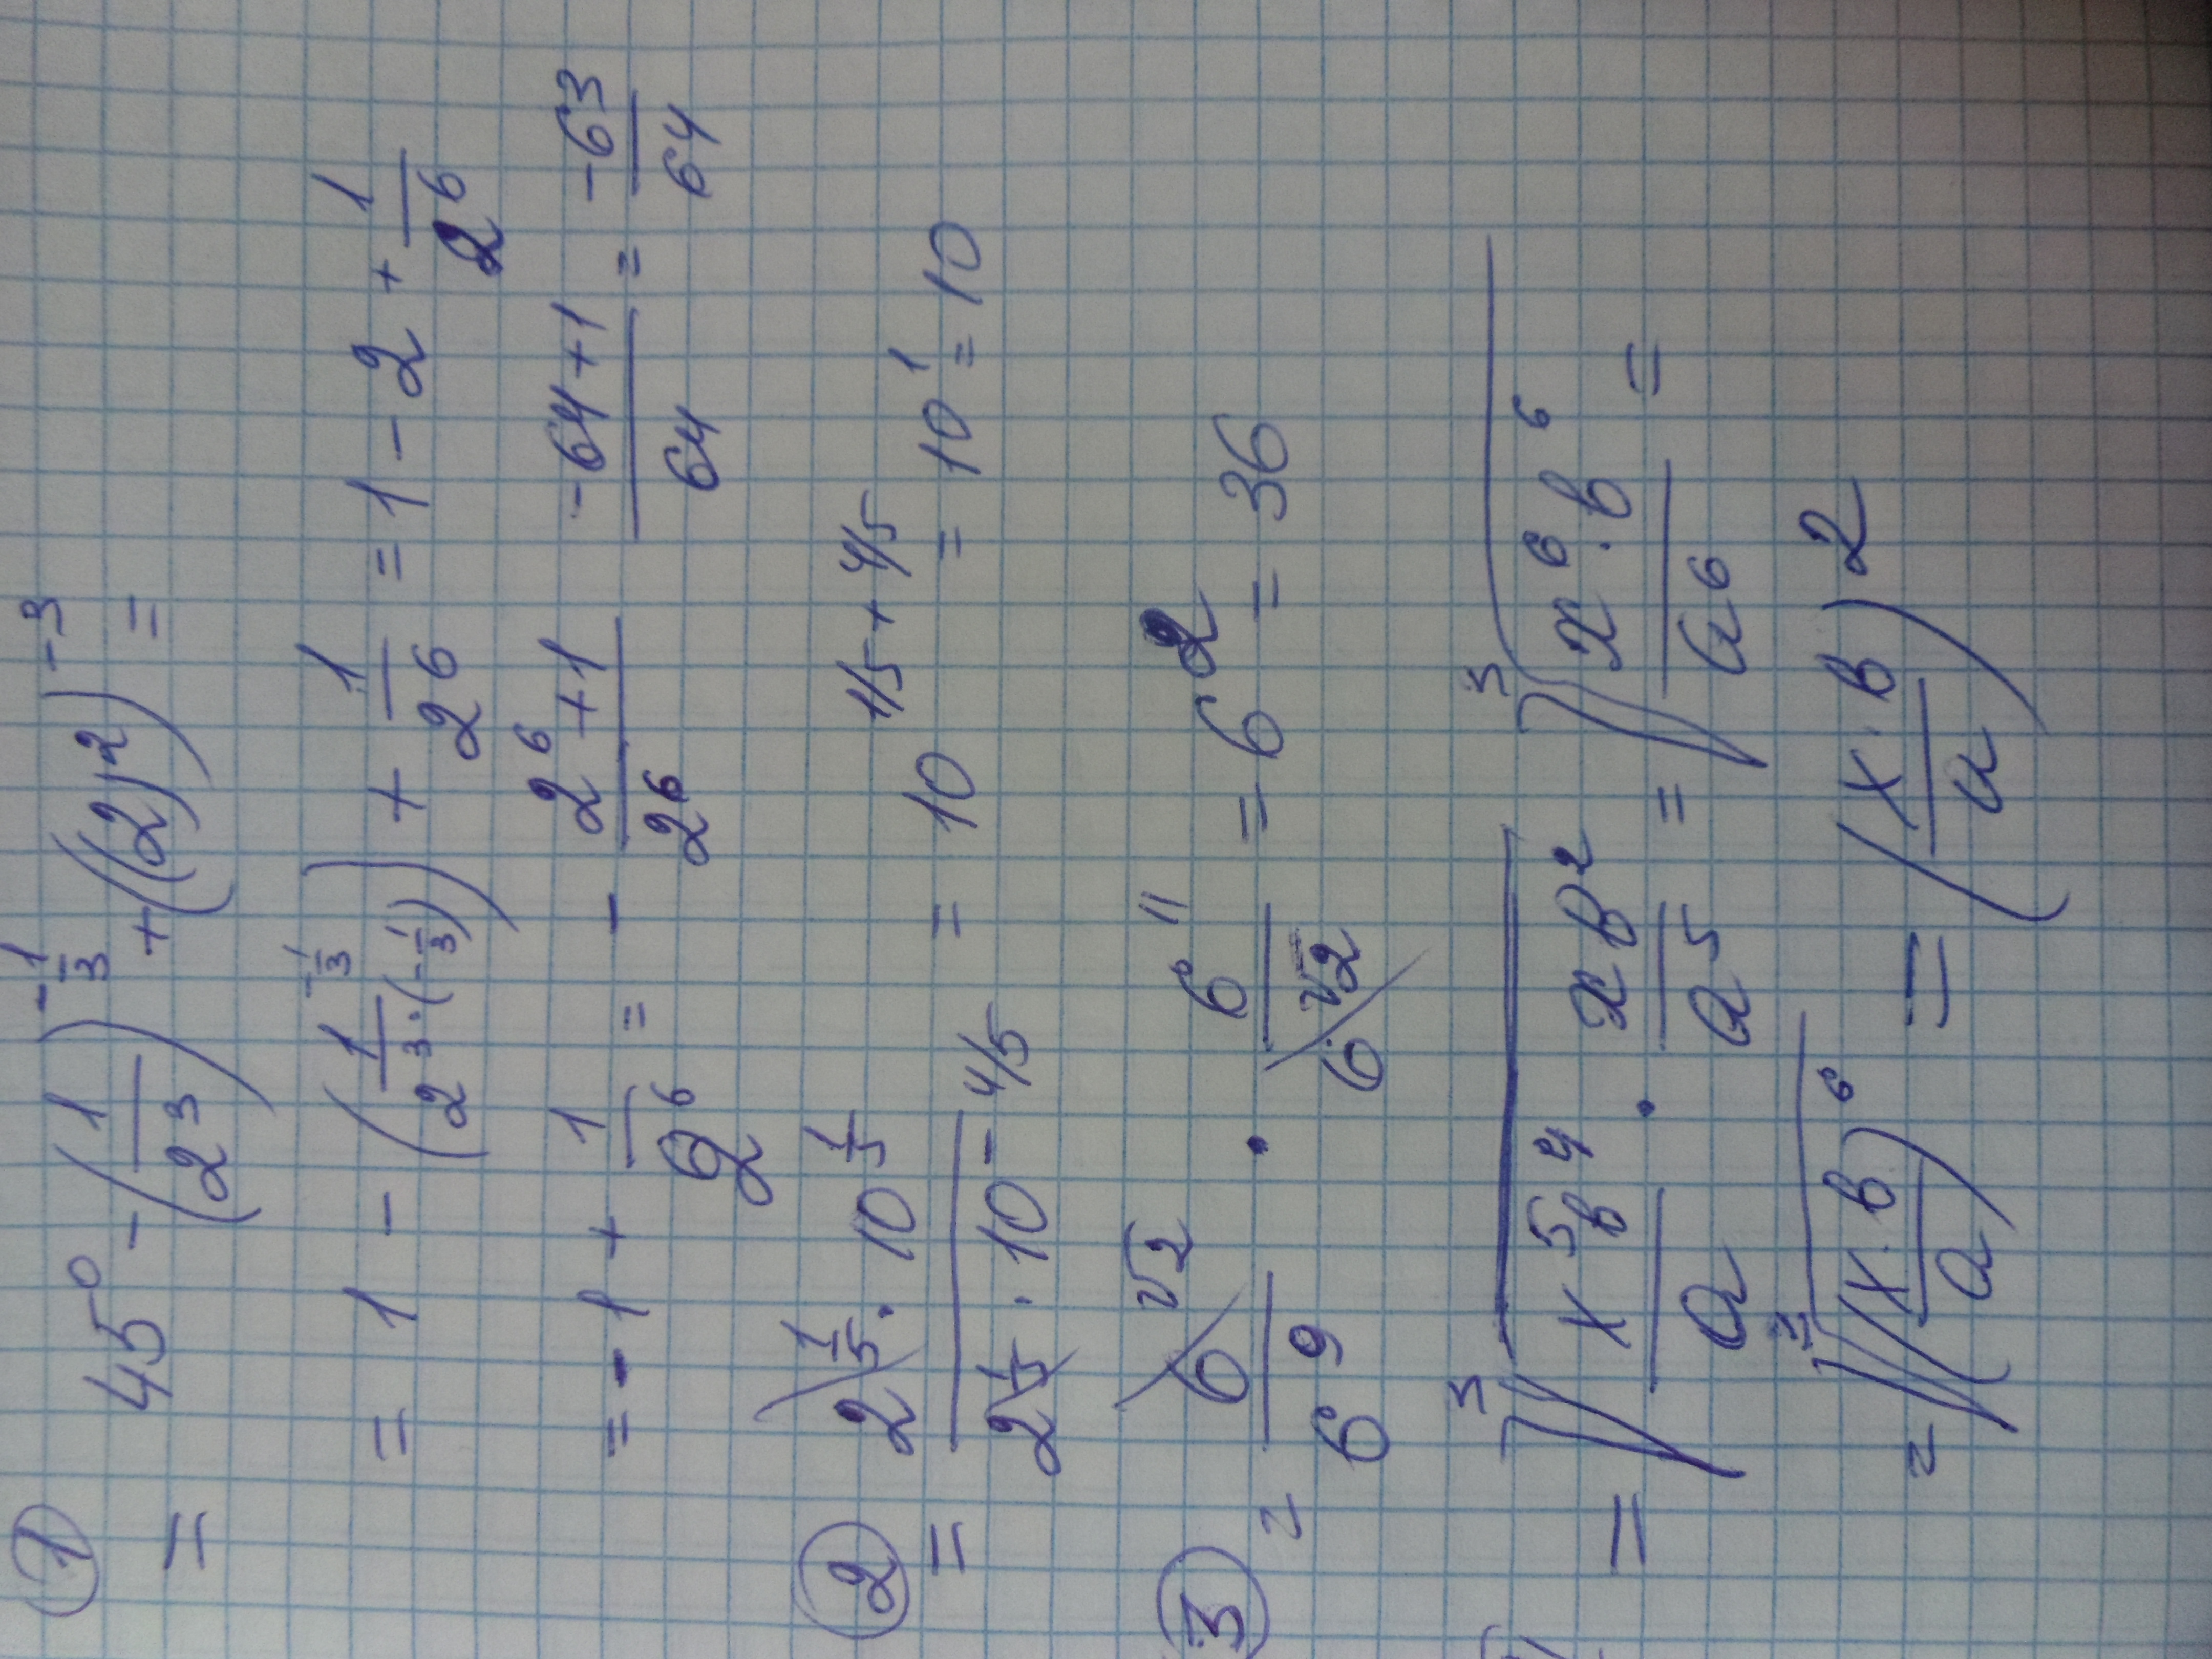 ① = 45⁰ - (1/2³)^(-1/3) + ((2)²)^(-3) =
= 1 - (1/2^(3·(-1/3)))^(-1/3) + 1/2⁶ = 1 - 2 + 1/2⁶
= -1 + 1/2⁶ = - (2⁶+1)/2⁶ (-64+1)/64 = -63/64
② = (2^(1/5) · 10^(1/5))/(2^(1/5) · 10^(-4/5)) = 10^(1/5+4/5) = 10¹ = 10
③ = 6^√2/6⁹ · 6¹¹/6^√2 = 6² = 36
= ³√(x⁵в⁴/a · xв²/a⁵) = ³√(x⁶·в⁶/a⁶) =
= ³√((x·в/a)⁶) = (x·в/a)²